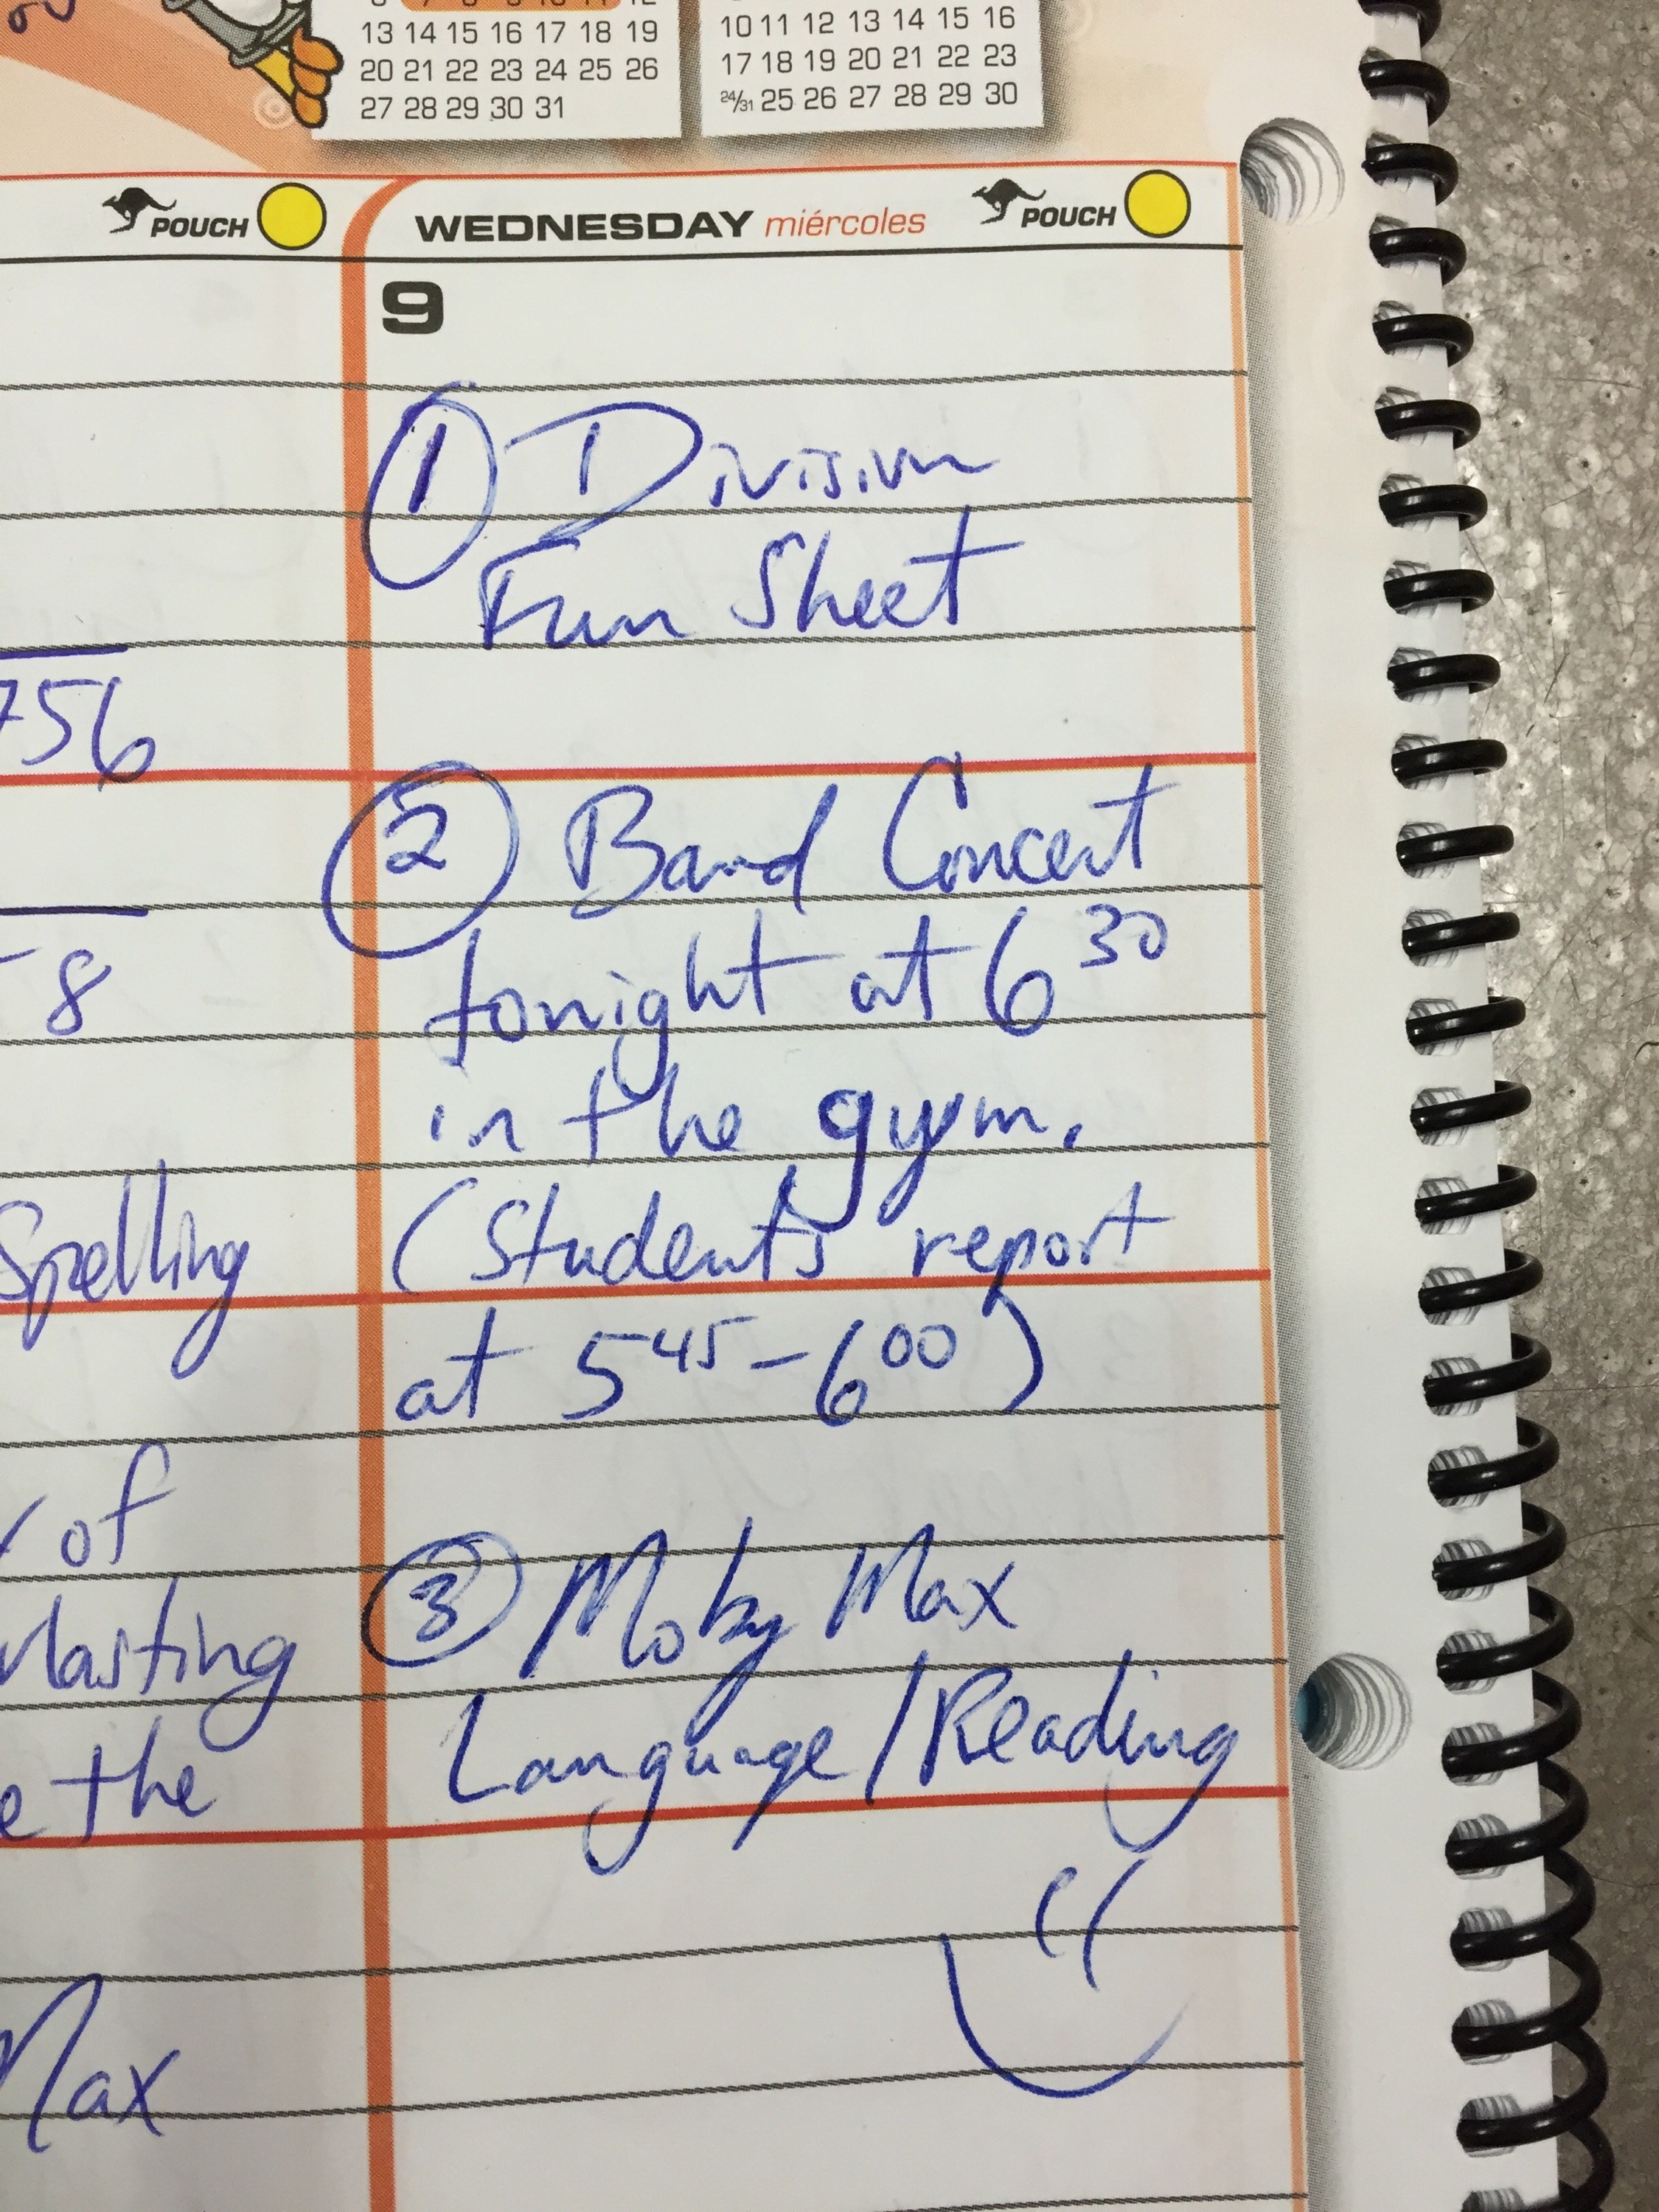 13 14 15 16 17 18 19
20 21 22 23 24 25 26
27 28 29 30 31
10 11 12 13 14 15 16
17 18 19 20 21 22 23
24/31 25 26 27 28 29 30
POUCH
756
8
Spelling
of
lasting
the
Max
WEDNESDAY miércoles POUCH
9
1 Division
Fun Sheet
2 Band Concert
tonight at 6 30
in the gym.
(Students report
at 5 45 - 6 00)
3 Moby Max
Language/Reading